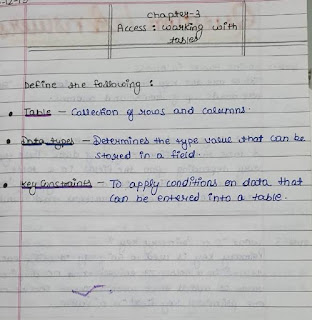 Chapter-3
Access : Working with
tables
Define the following :
• Table - Collection of rows and columns.
• Data types - Determines the type value that can be
stored in a field.
• Key Constraints - To apply conditions on data that
can be entered into a table.